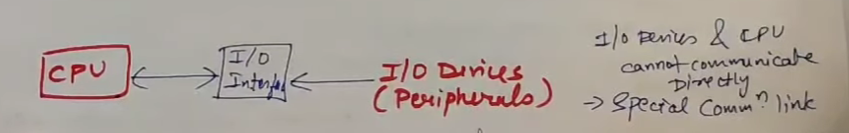 CPU
I/O
Interfac
I/O Devices
(Peripherals)
I/O Devices & CPU
cannot communicate
Directly
→ Special Commⁿ link